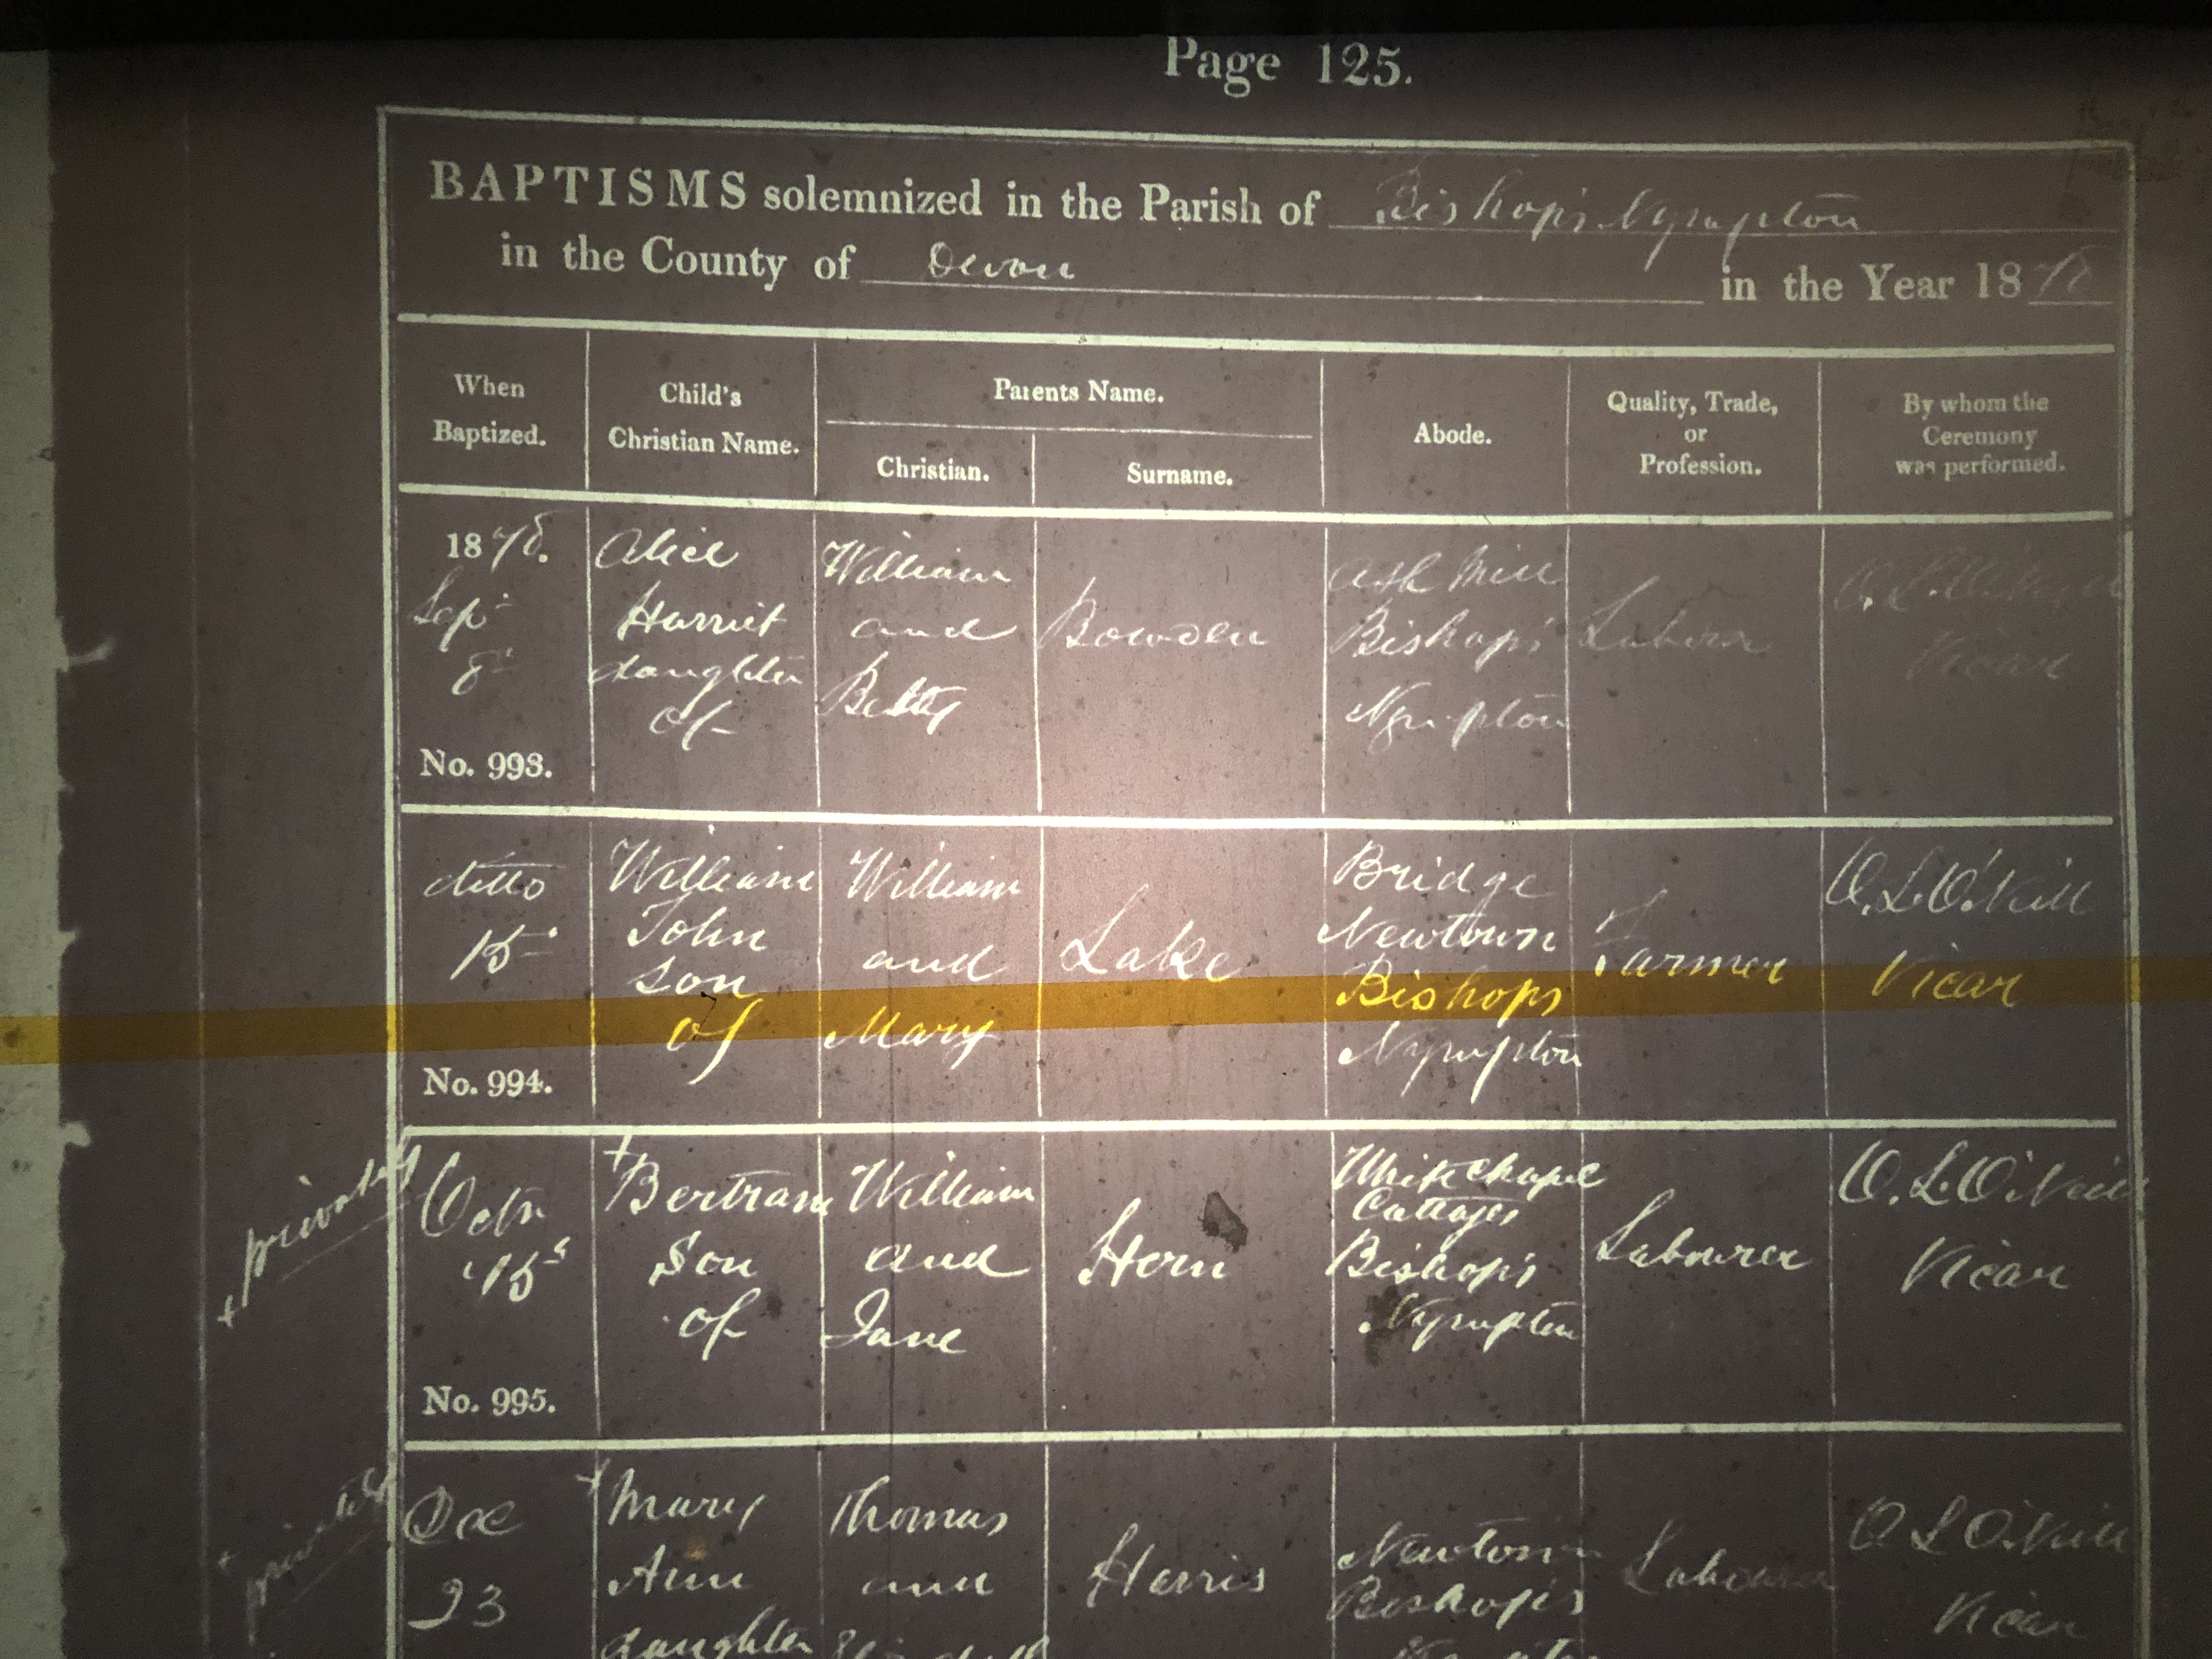 Page 125.
BAPTISMS solemnized in the Parish of Bishop's Nympton
in the County of Devon in the Year 1878
When Baptized.
Child's Christian Name.
Parents Name.
Christian.
Surname.
Abode.
Quality, Trade, or Profession.
By whom the Ceremony was performed.
1878.
Sep
8
No. 993.
Alice
Harriet
daughter
of
William
and
Betty
Bowden
Ash Mill
Bishop's
Nympton
Labourer
O. L. O'Neill
Vicar
ditto
15
No. 994.
William
John
son
of
William
and
Mary
Lake
Bridge
Newtown
Bishops
Nympton
Farmer
O. L. O'Neill
Vicar
+ privately
Octr
15
No. 995.
+
Bertram
Son
of
William
and
Jane
Horn
Whitechapel
Cottages
Bishop's
Nympton
Labourer
O. L. O'Neill
Vicar
+ privately
Dec
23
+
Mary
Ann
daughter
Thomas
and
Harris
Newtown
Bishop's
Labourer
O L O'Neill
Vicar